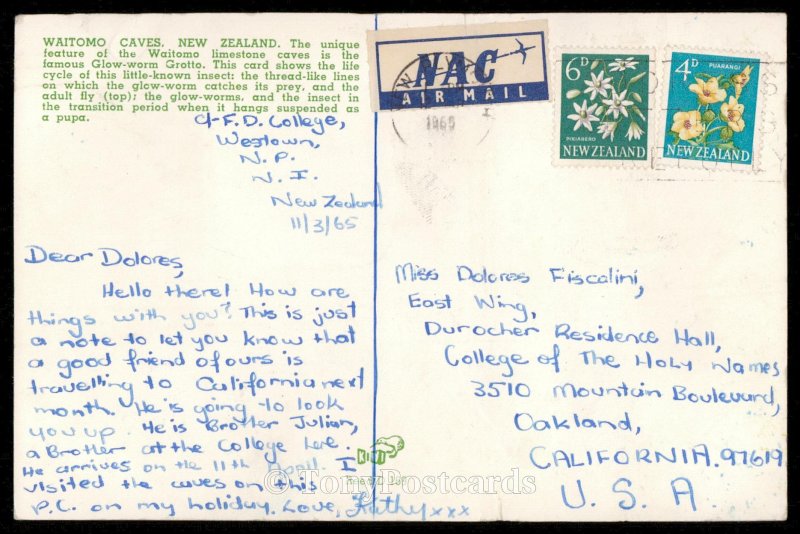 WAITOMO CAVES, NEW ZEALAND. The unique
feature of the Waitomo limestone caves is the
famous Glow-worm Grotto. This card shows the life
cycle of this little-known insect: the thread-like lines
on which the glow-worm catches its prey, and the
adult fly (top); the glow-worms, and the insect in
the transition period when it hangs suspended as
a pupa.
NAC
AIR MAIL
1965
6D
PIKIARERO
NEW ZEALAND
4D
PUARANGI
NEW ZEALAND
C/- F.D. College,
Westown,
N.P.
N.I.
New Zealand
11/3/65
Dear Dolores,
Hello there! How are
things with you? This is just
a note to let you know that
a good friend of ours is
travelling to California next
month. He is going to look
you up. He is Brother Julian,
a Brother at the College here.
He arrives on the 11th April. I
visited the caves on this
P.C. on my holiday. Love, Kathy xxx
KIWI
Miss Dolores Fiscalini,
East Wing,
Durocher Residence Hall,
College of The Holy Names
3510 Mountain Boulevard,
Oakland,
CALIFORNIA. 97619
U.S.A.
© TonyPostcards